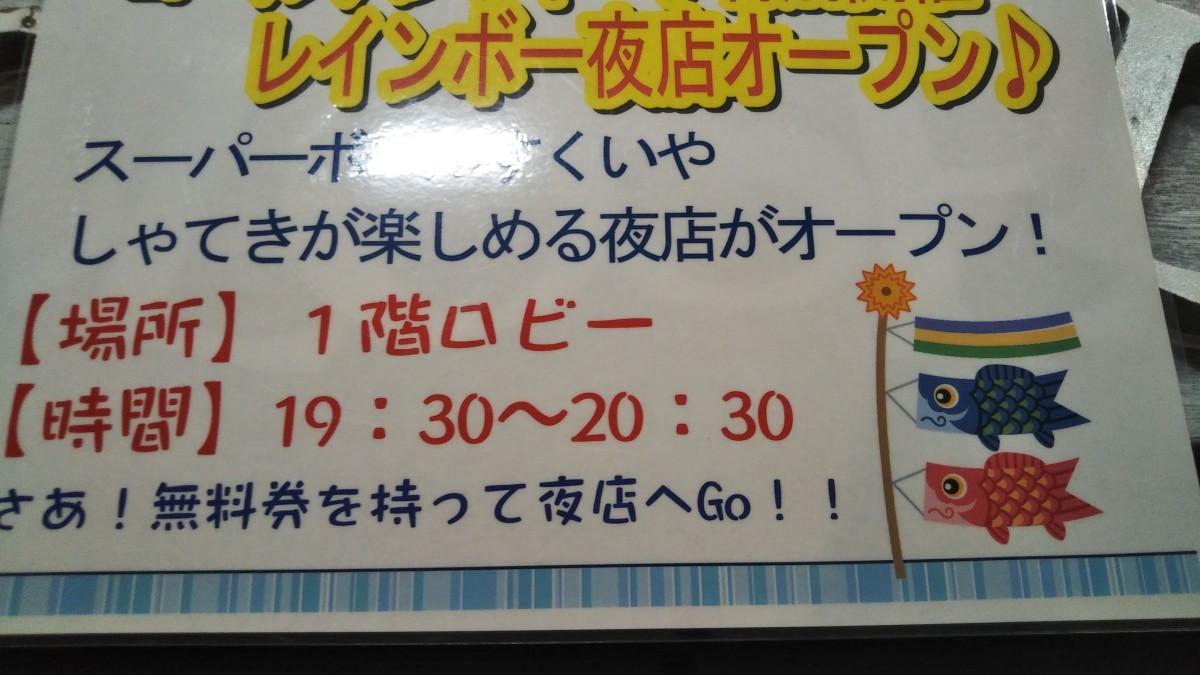 レインボー夜店オープン♪
スーパーボ すくいや
しゃてきが楽しめる夜店がオープン！
【場所】 １階ロビー
【時間】 19：30～20：30
さあ！無料券を持って夜店へGo！！